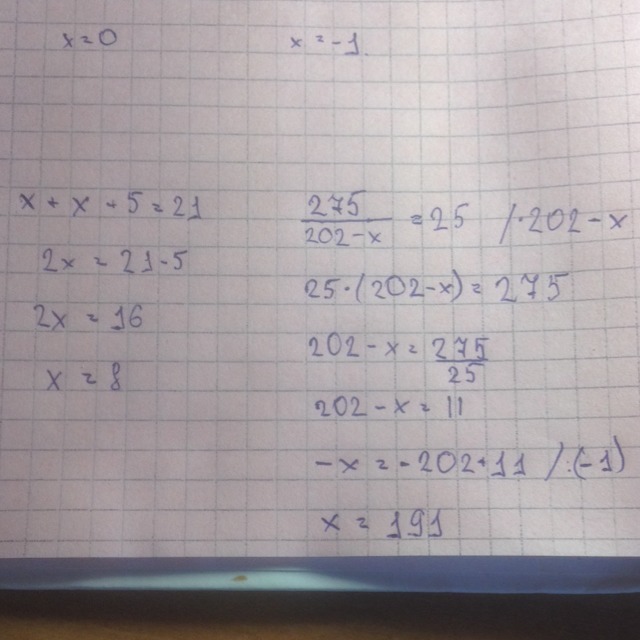 x = 0
x = -1
x + x + 5 = 21
2x = 21 - 5
2x = 16
x = 8
275
202 - x
= 25 / · 202 - x
25 · (202 - x) = 275
202 - x = 275
25
202 - x = 11
-x = -202 + 11 / · (-1)
x = 191